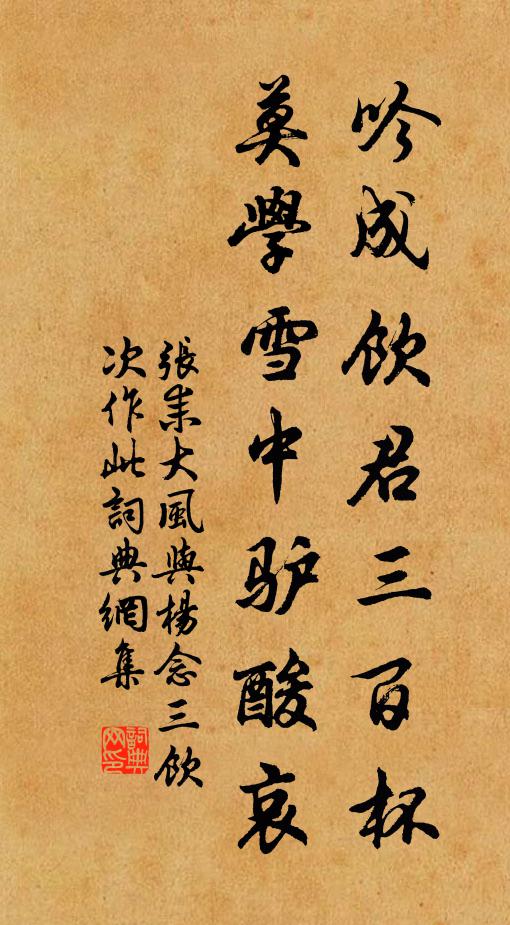 吟成饮君三百杯
莫學雪中驴酸哀
張耒大風與楊念三飲
次作此詞典網集
詞典
网印